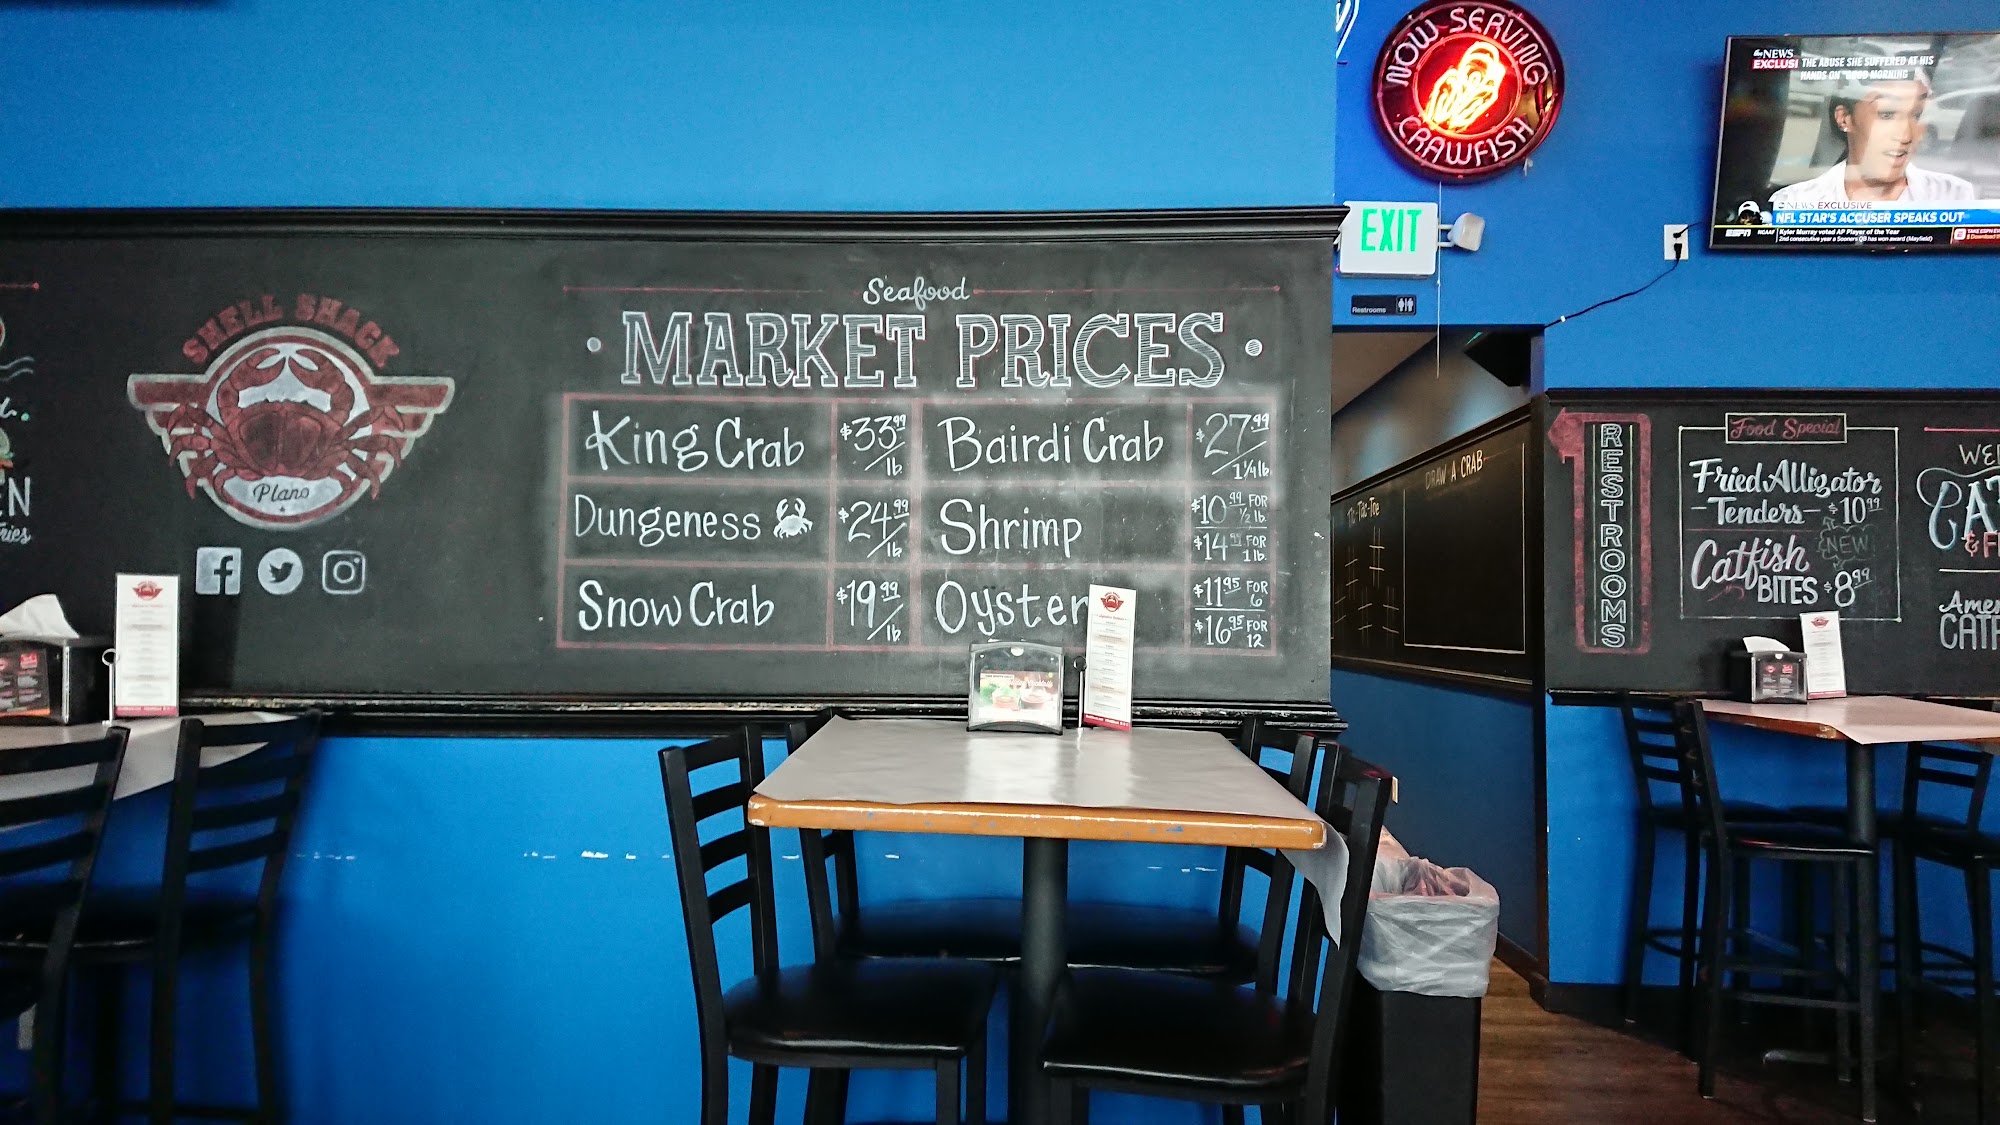 SHELL SHACK
Plano
EN
ries
Seafood
MARKET PRICES
King Crab $33.99/lb
Bairdi Crab $27.99/1 1/4 lb
Dungeness $24.99/lb
Shrimp $10.99 FOR 1/2 lb.
$14.99 FOR 1 lb.
Snow Crab $19.99/lb
Oyster $11.95 FOR 6
$16.95 FOR 12
NOW SERVING
CRAWFISH
EXIT
Restrooms
Tic-Tac-Toe
DRAW A CRAB
the NEWS
EXCLUSI
THE ABUSE SHE SUFFERED AT HIS
HANDS ON "GOOD MORNING
NEWS EXCLUSIVE
NFL STAR'S ACCUSER SPEAKS OUT
ESPN
NCAAF
Kyler Murray voted AP Player of the Year
2nd consecutive year a Sooners QB has won award (Mayfield)
RESTROOMS
Food Special
Fried Alligator
-Tenders- $10.99
NEW
Catfish
BITES $8.99
WE
CAT
& F
Amer
CATF